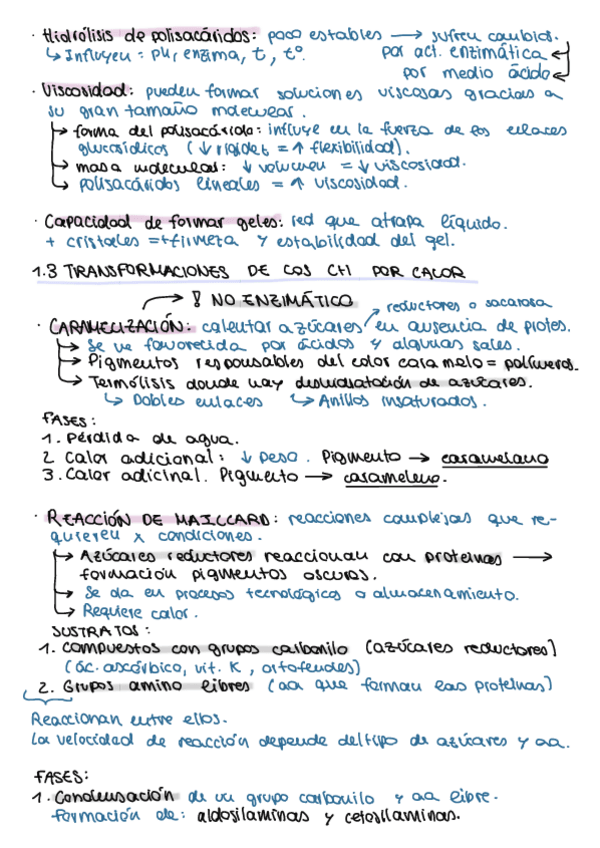 · Hidrólisis de polisacáridos: poco estables → sufren cambios.
↳ Influyen: pH, enzima, t, tº. por act. enzimática
por medio ácido
· Viscosidad: pueden formar soluciones viscosas gracias a
su gran tamaño molecular.
→ forma del polisacárido: influye en la fuerza de los enlaces
glucosídicos (↓ rigidez = ↑ flexibilidad).
→ masa molecular: ↓ volumen = ↓ viscosidad.
→ polisacáridos lineales = ↑ viscosidad.
· Capacidad de formar geles: red que atrapa líquido.
+ cristales = + firmeza y estabilidad del gel.
1.3 TRANSFORMACIONES DE LOS CH POR CALOR
→ ! NO ENZIMÁTICO
reductores o sacarosa
· CARAMELIZACIÓN: calentar azúcares en ausencia de protes.
→ Se ve favorecida por ácidos y algunas sales.
→ Pigmentos responsables del color caramelo = polímeros.
→ Termólisis donde hay deshidratación de azúcares.
↳ Dobles enlaces ↳ Anillos insaturados.
FASES:
1. Pérdida de agua.
2 Calor adicional: ↓ peso. Pigmento → caramelano
3. Calor adicinal. Pigmento → carameleno.
· REACCIÓN DE MAILLARD: reacciones complejas que re-
quieren x condiciones.
→ Azúcares reductores reaccionan con proteínas →
formación pigmentos oscuros.
→ Se da en procesos tecnológicos o almacenamiento.
→ Requiere calor.
SUSTRATOS:
1. compuestos con grupos carbonilo (azúcares reductores)
(ác. ascórbico, vit. K, ortofenoles)
2. Grupos amino libres (aa que forman las proteínas)
Reaccionan entre ellos.
La velocidad de reacción depende del tipo de azúcares y aa.
FASES:
1. Condensación de un grupo carbonilo y aa libre.
formación de: aldosilaminas y cetosilaminas.